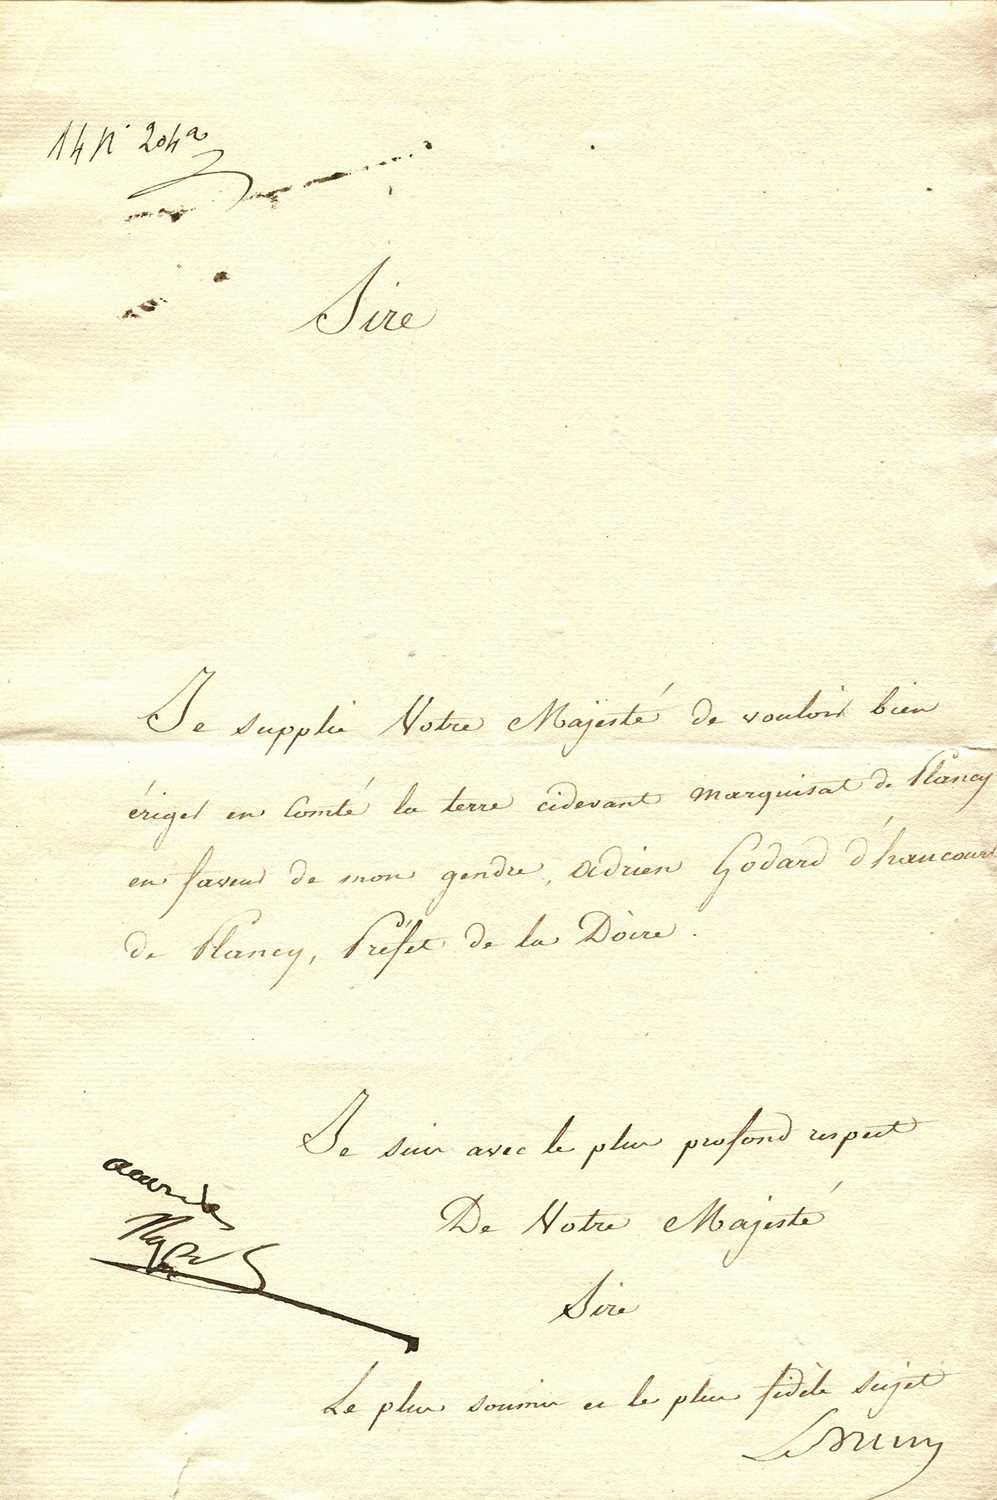 14 N° 204a
Sire
Je supplie Votre Majesté de vouloir bien
ériger en Comté la terre cidevant marquisat de Plancy
en faveur de mon gendre, Adrien Godard d'haucourt
de Plancy, Préfet de la Doire.
Je suis avec le plus profond respect
De Votre Majesté
Sire
accordé
Np
Le plus soumis et le plus fidèle sujet
Lebrun